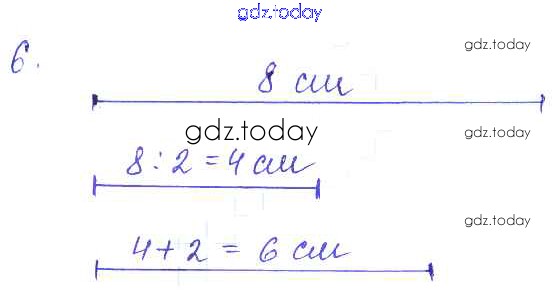 gdz.today
6.
gdz.today
8 см
gdz.today
gdz.today
8 : 2 = 4 см
gdz.today
4 + 2 = 6 см